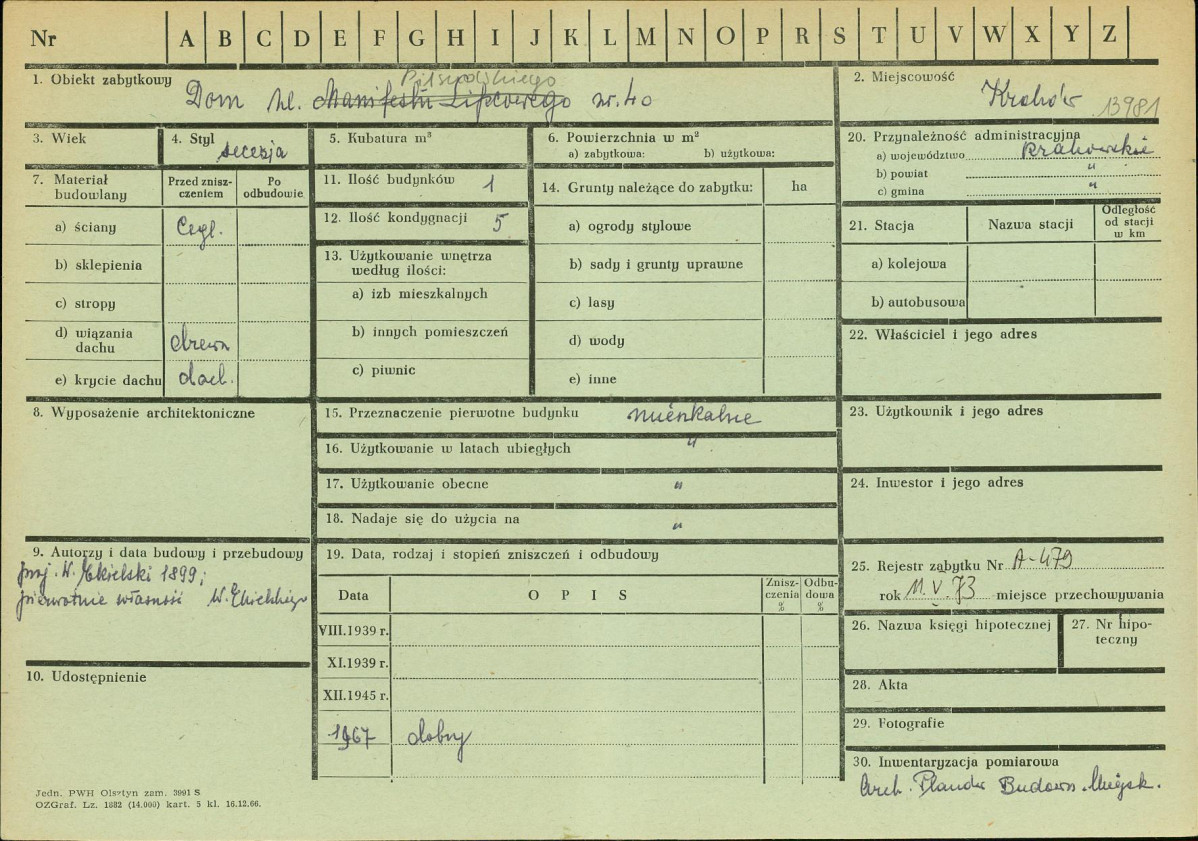 Nr A B C D E F G H I J K L M N O P R S T U V W X Y Z
1. Obiekt zabytkowy
Piłsudskiego
Dom ul. Manifestu Lipcowego nr. 40
2. Miejscowość
Kraków 13981
3. Wiek
4. Styl
secesja
5. Kubatura m³
6. Powierzchnia w m²
a) zabytkowa: b) użytkowa:
20. Przynależność administracyjna
a) województwo krakowskie
b) powiat "
c) gmina "
7. Materiał
budowlany
Przed znisz-
czeniem
Po
odbudowie
a) ściany cegl.
b) sklepienia
c) stropy
d) wiązania
dachu drewn
e) krycie dachu dach.
11. Ilość budynków 1
12. Ilość kondygnacji 5
13. Użytkowanie wnętrza
według ilości:
a) izb mieszkalnych
b) innych pomieszczeń
c) piwnic
14. Grunty należące do zabytku: ha
a) ogrody stylowe
b) sady i grunty uprawne
c) lasy
d) wody
e) inne
21. Stacja Nazwa stacji
Odległość
od stacji
w km
a) kolejowa
b) autobusowa
22. Właściciel i jego adres
8. Wyposażenie architektoniczne
15. Przeznaczenie pierwotne budynku mieszkalne
16. Użytkowanie w latach ubiegłych "
17. Użytkowanie obecne "
18. Nadaje się do użycia na "
23. Użytkownik i jego adres
24. Inwestor i jego adres
9. Autorzy i data budowy i przebudowy
proj. W. Ekielski 1899;
pierwotnie własność W. Ekielskiego
10. Udostępnienie
19. Data, rodzaj i stopień zniszczeń i odbudowy
Data O P I S
Znisz-
czenia
%
Odbu-
dowa
%
VIII.1939 r.
XI.1939 r.
XII.1945 r.
1967 dobry
25. Rejestr zabytku Nr A-479
rok 11.V.73 miejsce przechowywania
26. Nazwa księgi hipotecznej
27. Nr hipo-
teczny
28. Akta
29. Fotografie
30. Inwentaryzacja pomiarowa
Arch. Planów Budown. Miejsk.
Jedn. PWH Olsztyn zam. 3991 S
OZGraf. Lz. 1882 (14.000) kart. 5 kl. 16.12.66.